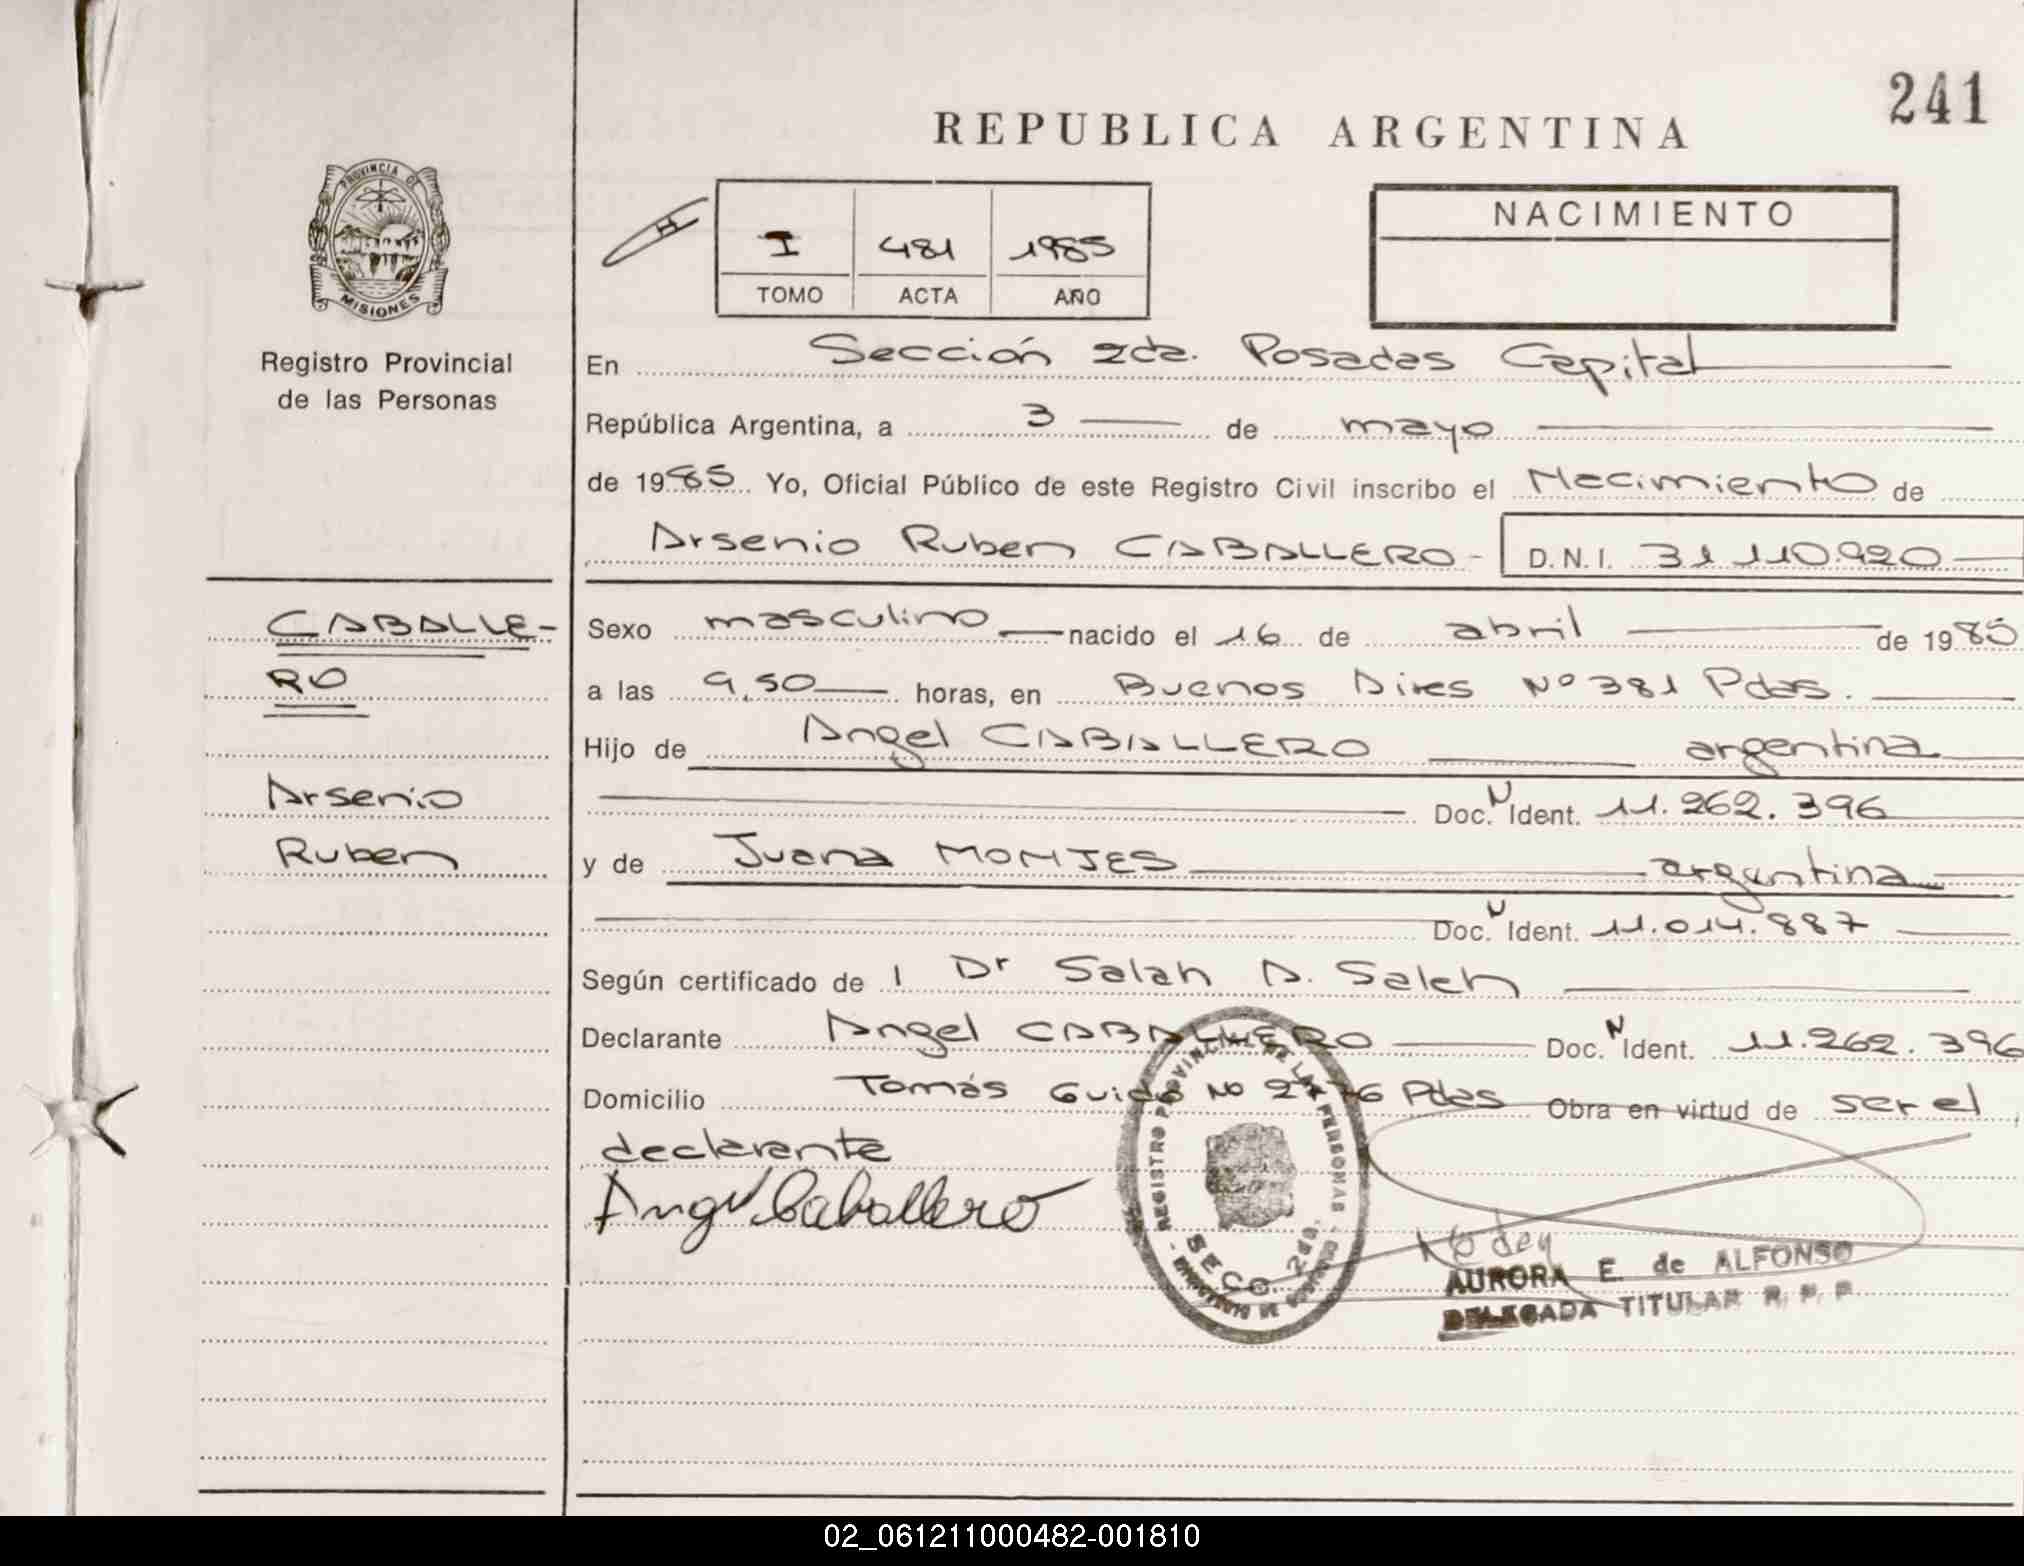 241
REPUBLICA ARGENTINA
PROVINCIA DE
MISIONES
Registro Provincial
de las Personas
I 481 1985
TOMO ACTA AÑO
NACIMIENTO
En Sección 2da. Posadas Capital
República Argentina, a 3 de mayo
de 1985 Yo, Oficial Público de este Registro Civil inscribo el Nacimiento de
Arsenio Ruben CABALLERO - D.N.I. 31 110.920
CABALLE-
RO
Arsenio
Ruben
Sexo masculino nacido el 16 de abril de 1985
a las 9,50 horas, en Buenos Aires Nº 381 Pdas.
Hijo de Angel CABALLERO argentina
Doc. N Ident. 11.262.396
y de Juana MONJES argentina
Doc. N Ident. 11.014.887
Según certificado de l Dr Salah A. Saleh
Declarante Angel CABALLERO Doc. N Ident. 11.262.396
Domicilio Tomás Guido Nº 2776 Pdas Obra en virtud de ser el
declarante
Angel Caballero
REGISTRO PROVINCIAL DE LAS PERSONAS
SECC. 2da.
AURORA E. de ALFONSO
DELEGADA TITULAR R. P. P.
02_061211000482-001810